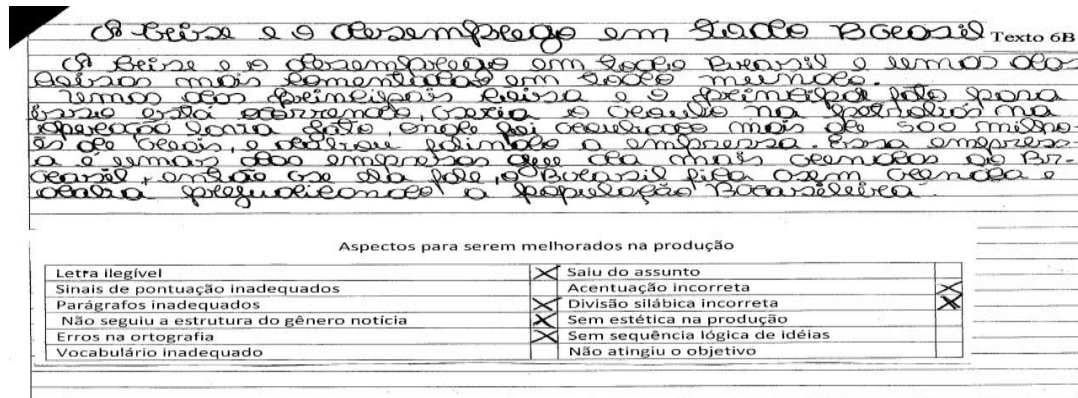 A Crise e o desemprego em todo Brasil
Texto 6B
A Crise e o desemprego em todo Brasil e umas das
coisas mais comentadas em todo mundo.
umas das principais coisa e o principal fato para
isso está ocorrendo, seria o na na
operação lava jato, onde foi mais de 500 milho-
es de reais, e falindo a empressa. Essa empress-
a é umas das empresas que da mais rendas ao Br-
rasil, então se ela fale, o Brasil fica sem renda e
prejudicando a população Brasileira
Aspectos para serem melhorados na produção
Letra ilegível X Saiu do assunto
Sinais de pontuação inadequados Acentuação incorreta X
Parágrafos inadequados X Divisão silábica incorreta X
Não seguiu a estrutura do gênero notícia X Sem estética na produção
Erros na ortografia X Sem sequência lógica de idéias
Vocabulário inadequado Não atingiu o objetivo